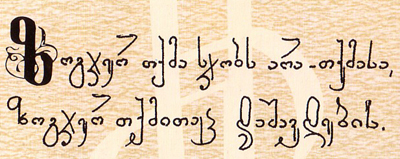 ზოგჯერ თქმა სჯობს არა-თქმასა,
ზოგჯერ თქმითაც დაშავდების.